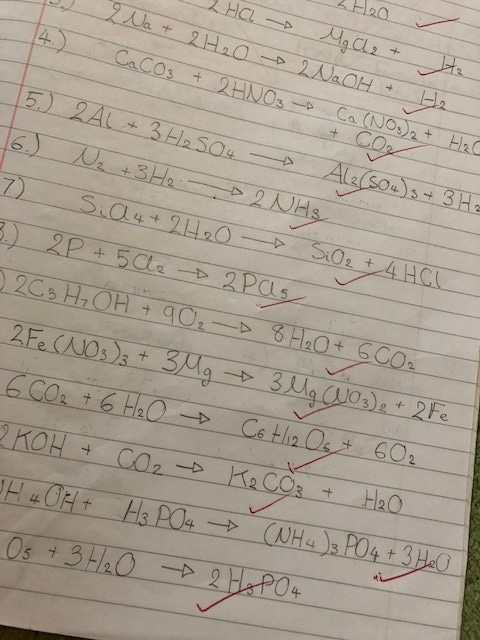 2H2O
2HCl → MgCl2 + H2
2Na + 2H2O → 2NaOH + H2
4.) CaCO3 + 2HNO3 → Ca(NO3)2 + H2O
+ CO2
5.) 2Al + 3H2SO4 → Al2(SO4)3 + 3H2
6.) N2 + 3H2 → 2NH3
7) SiCl4 + 2H2O → SiO2 + 4HCl
8.) 2P + 5Cl2 → 2PCl5
) 2C3H7OH + 9O2 → 8H2O + 6CO2
2Fe(NO3)3 + 3Mg → 3Mg(NO3)2 + 2Fe
6CO2 + 6H2O → C6H12O6 + 6O2
2KOH + CO2 → K2CO3 + H2O
NH4OH + H3PO4 → (NH4)3PO4 + 3H2O
O5 + 3H2O → 2H3PO4